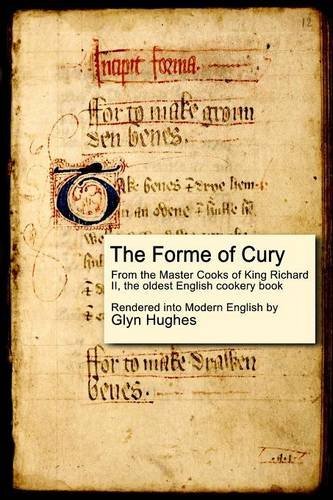 12
Incipit forma.
ffor to make groun
den benes.
Take benes & drye hem
in an ovene & hulle he
we
The Forme of Cury
From the Master Cooks of King Richard
II, the oldest English cookery book
Rendered into Modern English by
Glyn Hughes
ffor to make drawen
benes.